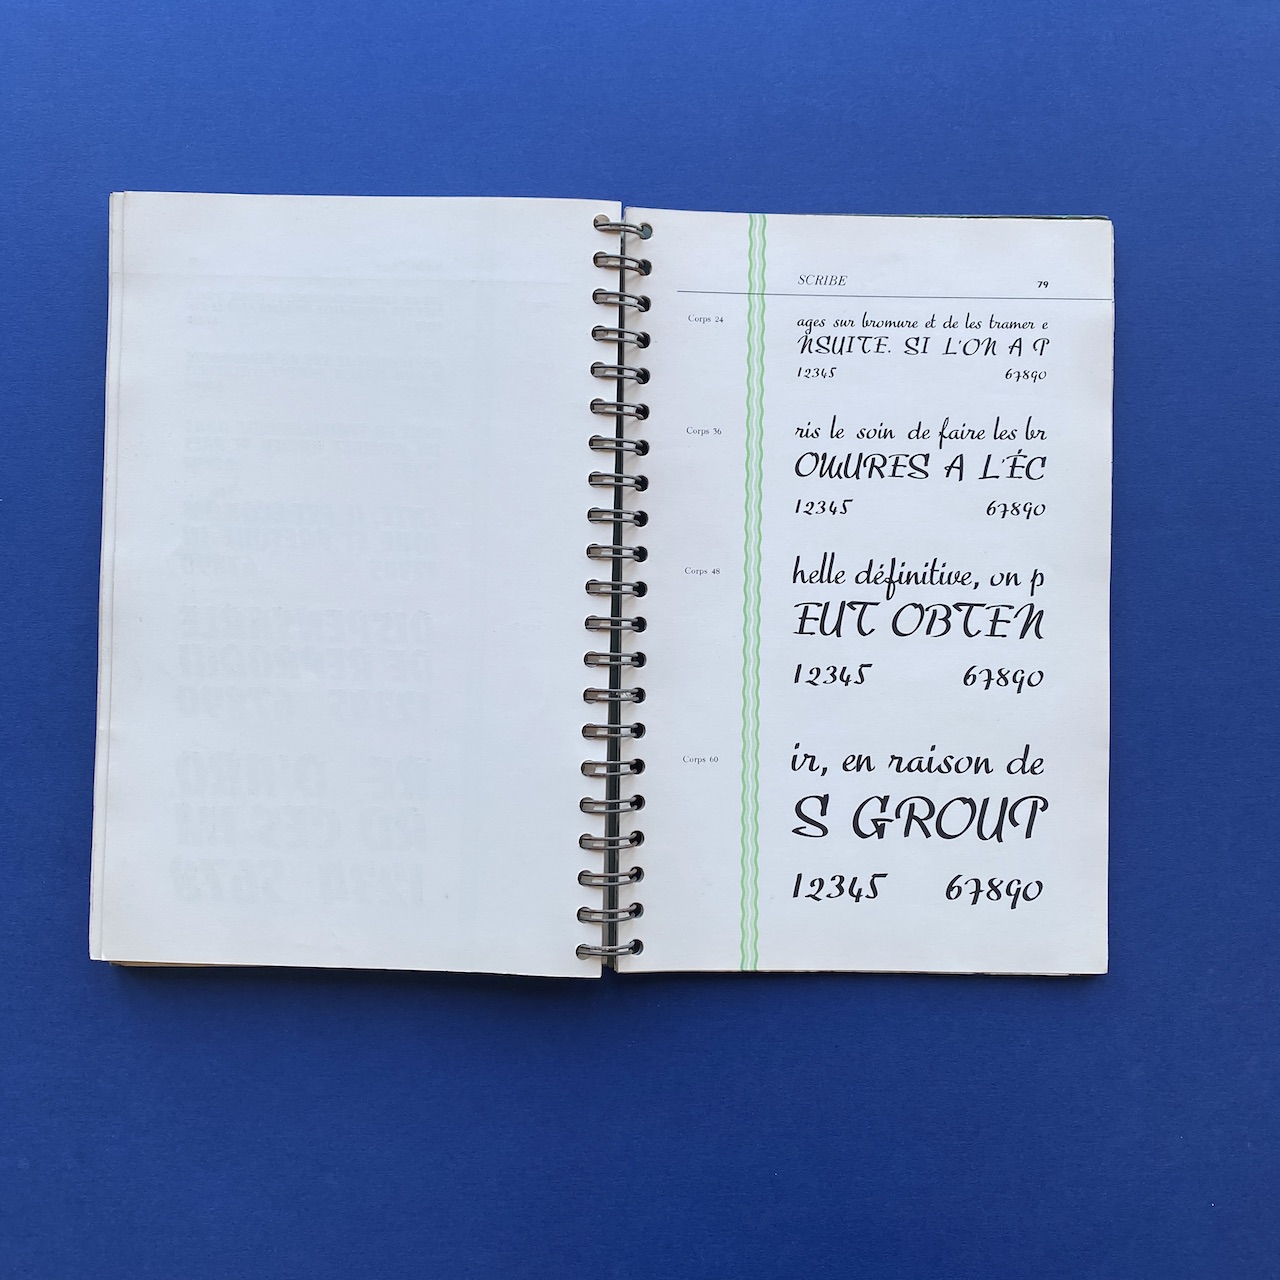 SCRIBE 79
Corps 24
ages sur bromure et de les tramer e
NSUITE. SI L'ON A P
12345 67890
Corps 36
ris le soin de faire les br
OMURES A L'ÉC
12345 67890
Corps 48
helle définitive, on p
EUT OBTEN
12345 67890
Corps 60
ir, en raison de
S GROUP
12345 67890